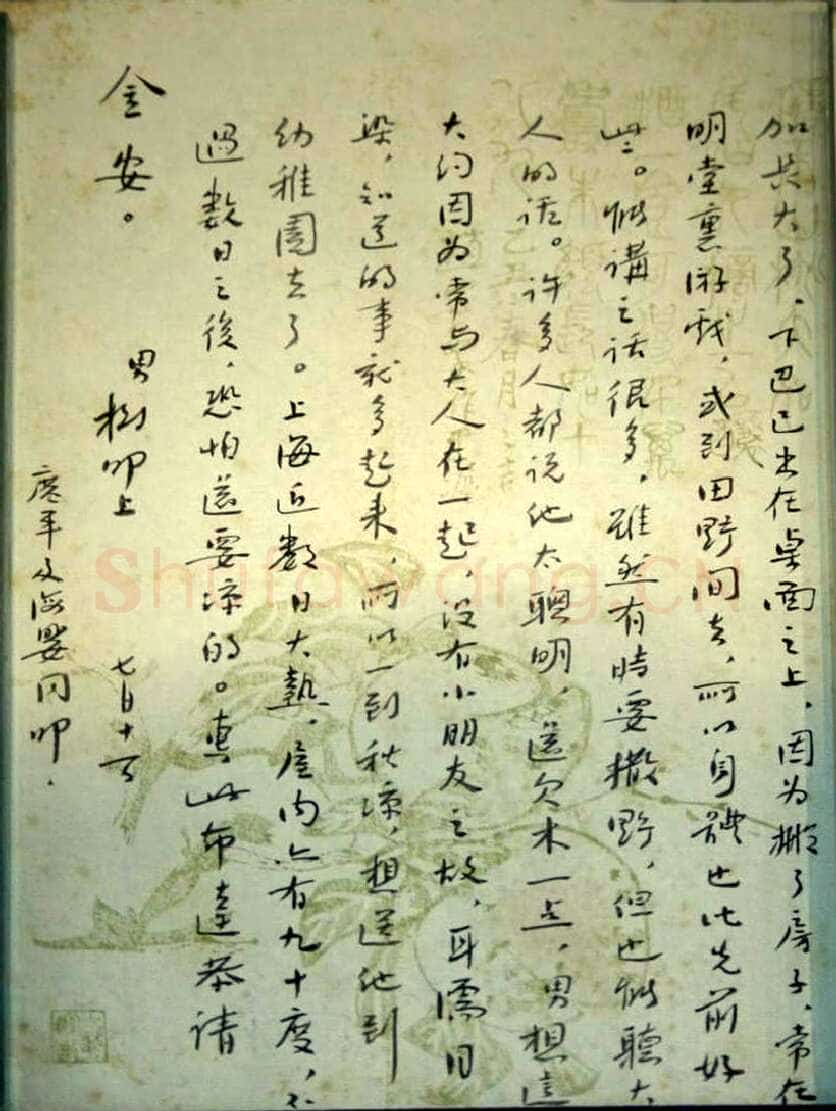 加長大了、下巴已出在桌面之上，因为搬了房子、常在
明堂裏游戏，或到田野间去，所以身體也比先前好
些。能講之话很多，雖然有時要撒野，但也能聽大
人的话。许多人都说他太聰明，還欠木一点，男想這
大约因为常与大人在一起，没有小朋友之故，耳濡目
染，知道的事就多起来，所以一到秋凉，想送他到
幼稚園去了。上海近数日大熱，屋内亦有九十度，不
過数日之後，恐怕還要凉的。专此布達恭请
金安。
男樹叩上 七月十一日
廣平及海嬰同叩.
Shufawang.CN